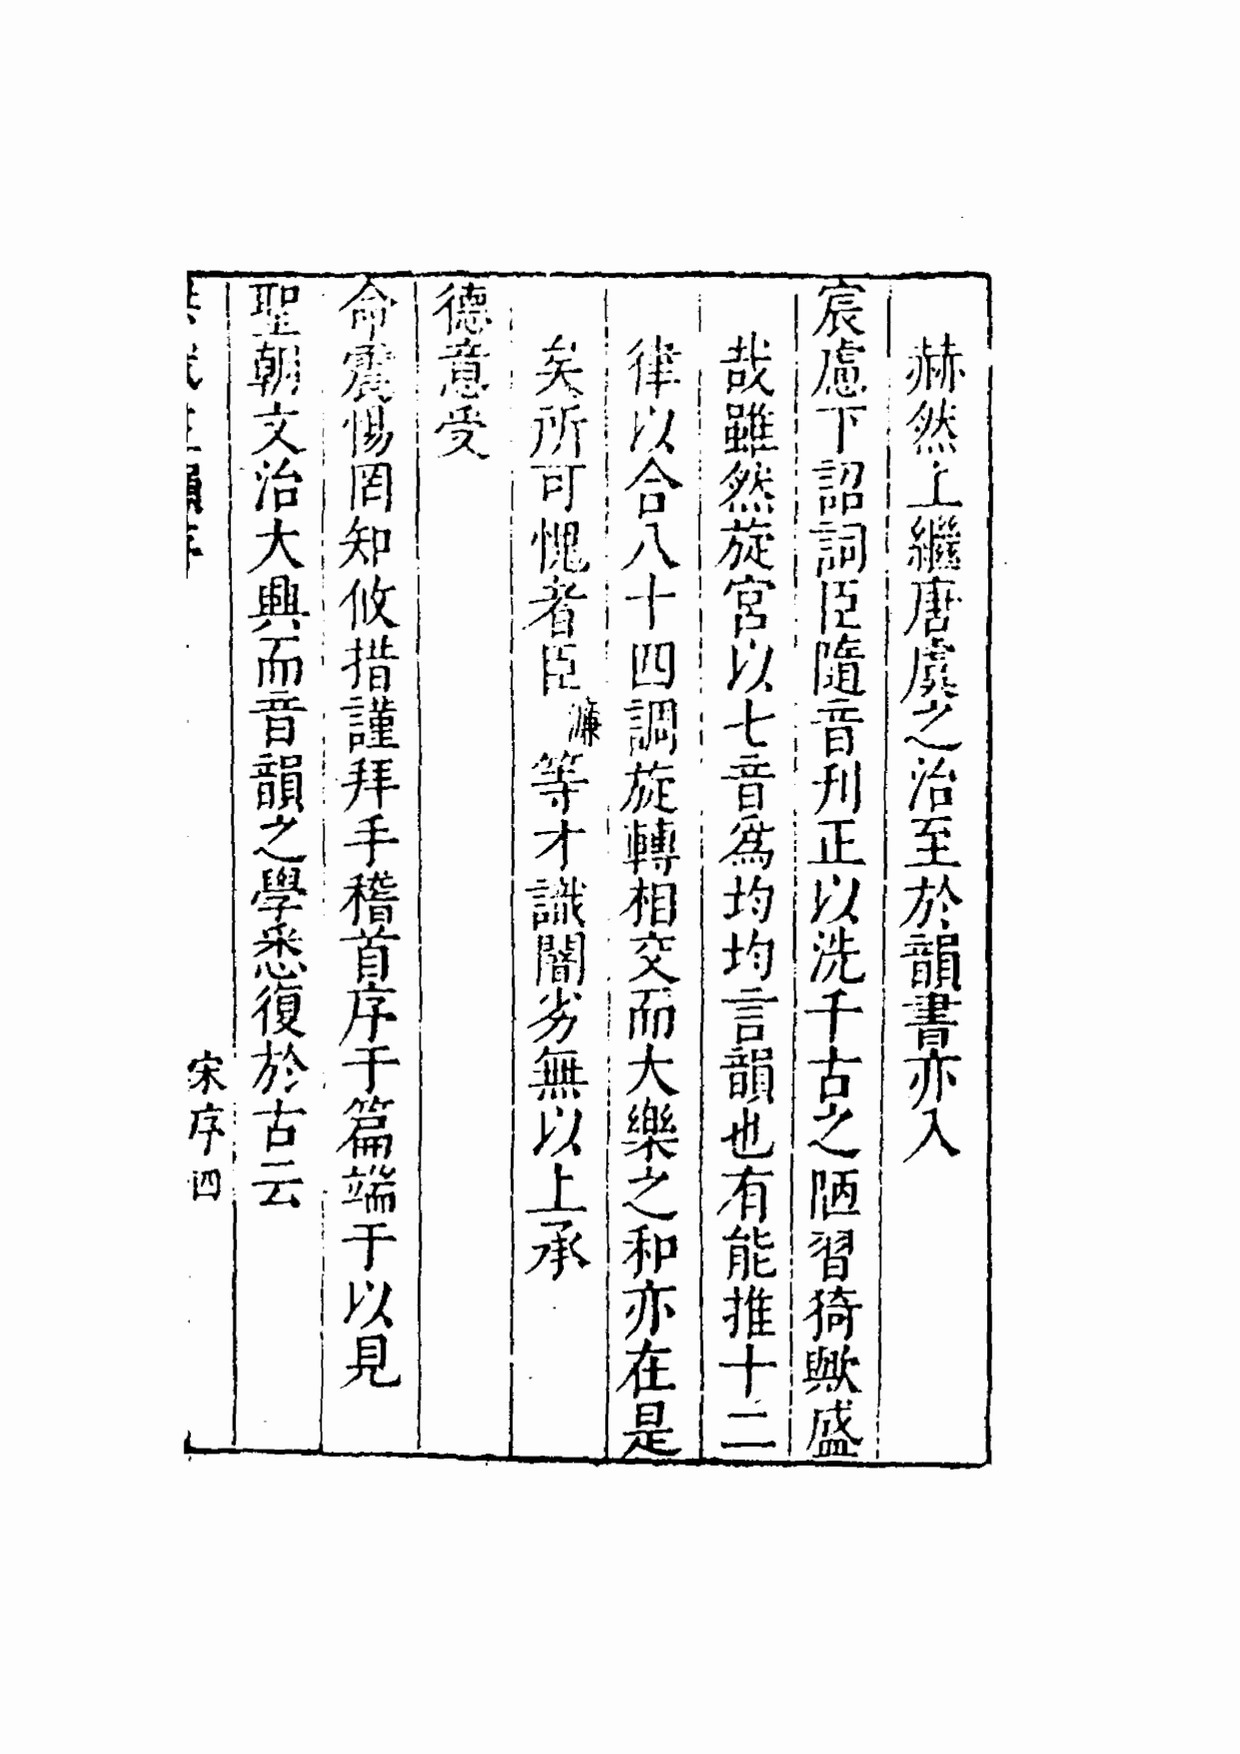 赫然上繼唐虞之治至於韻書亦入
宸慮下詔詞臣隨音刋正以洗千古之陋習猗歟盛
哉雖然旋宮以七音為均均言韻也有能推十二
律以合八十四調旋轉相交而大樂之和亦在是
矣所可愧者臣濂等才識闇劣無以上承
德意受
命震惕罔知攸措謹拜手稽首序于篇端于以見
聖朝文治大興而音韻之學悉復於古云
宋序四